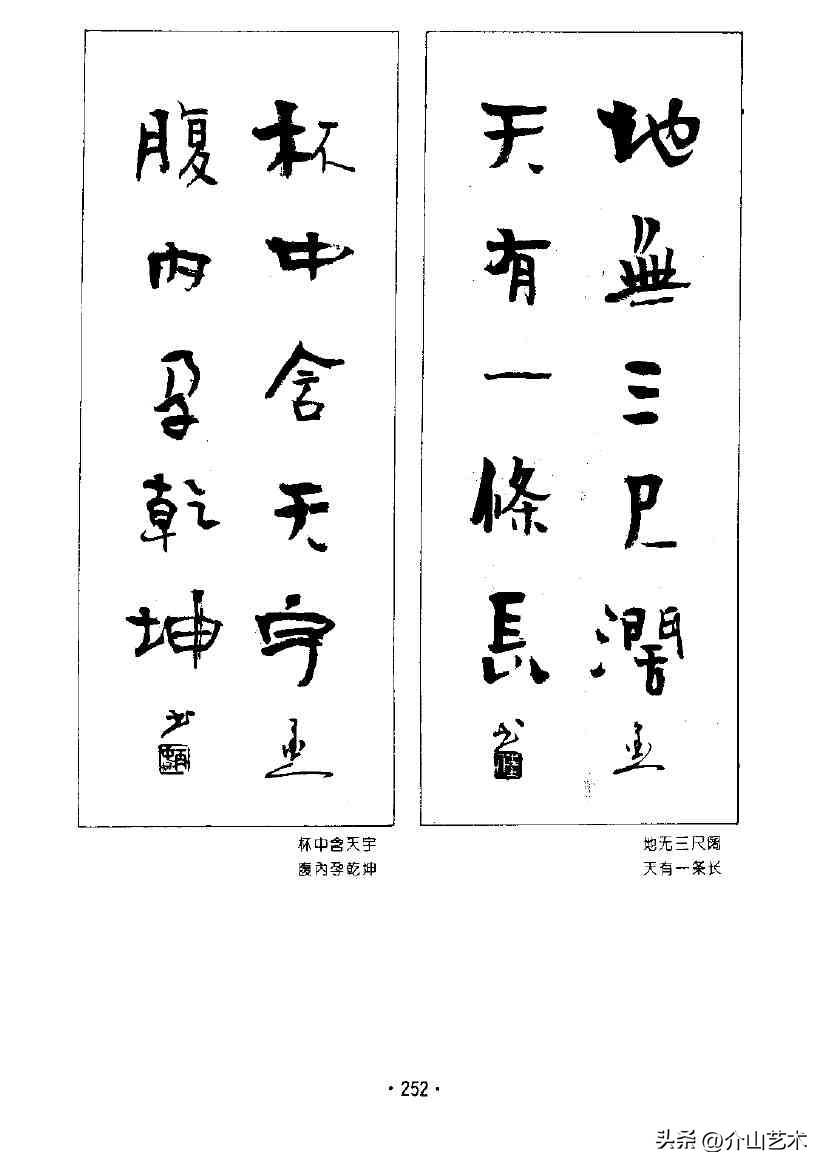 地無三尺濶
天有一條長
杯中含天宇
腹內孕乾坤
地无三尺阔
天有一条长
杯中含天宇
腹內孕乾坤
·252·
头条 @介山艺术